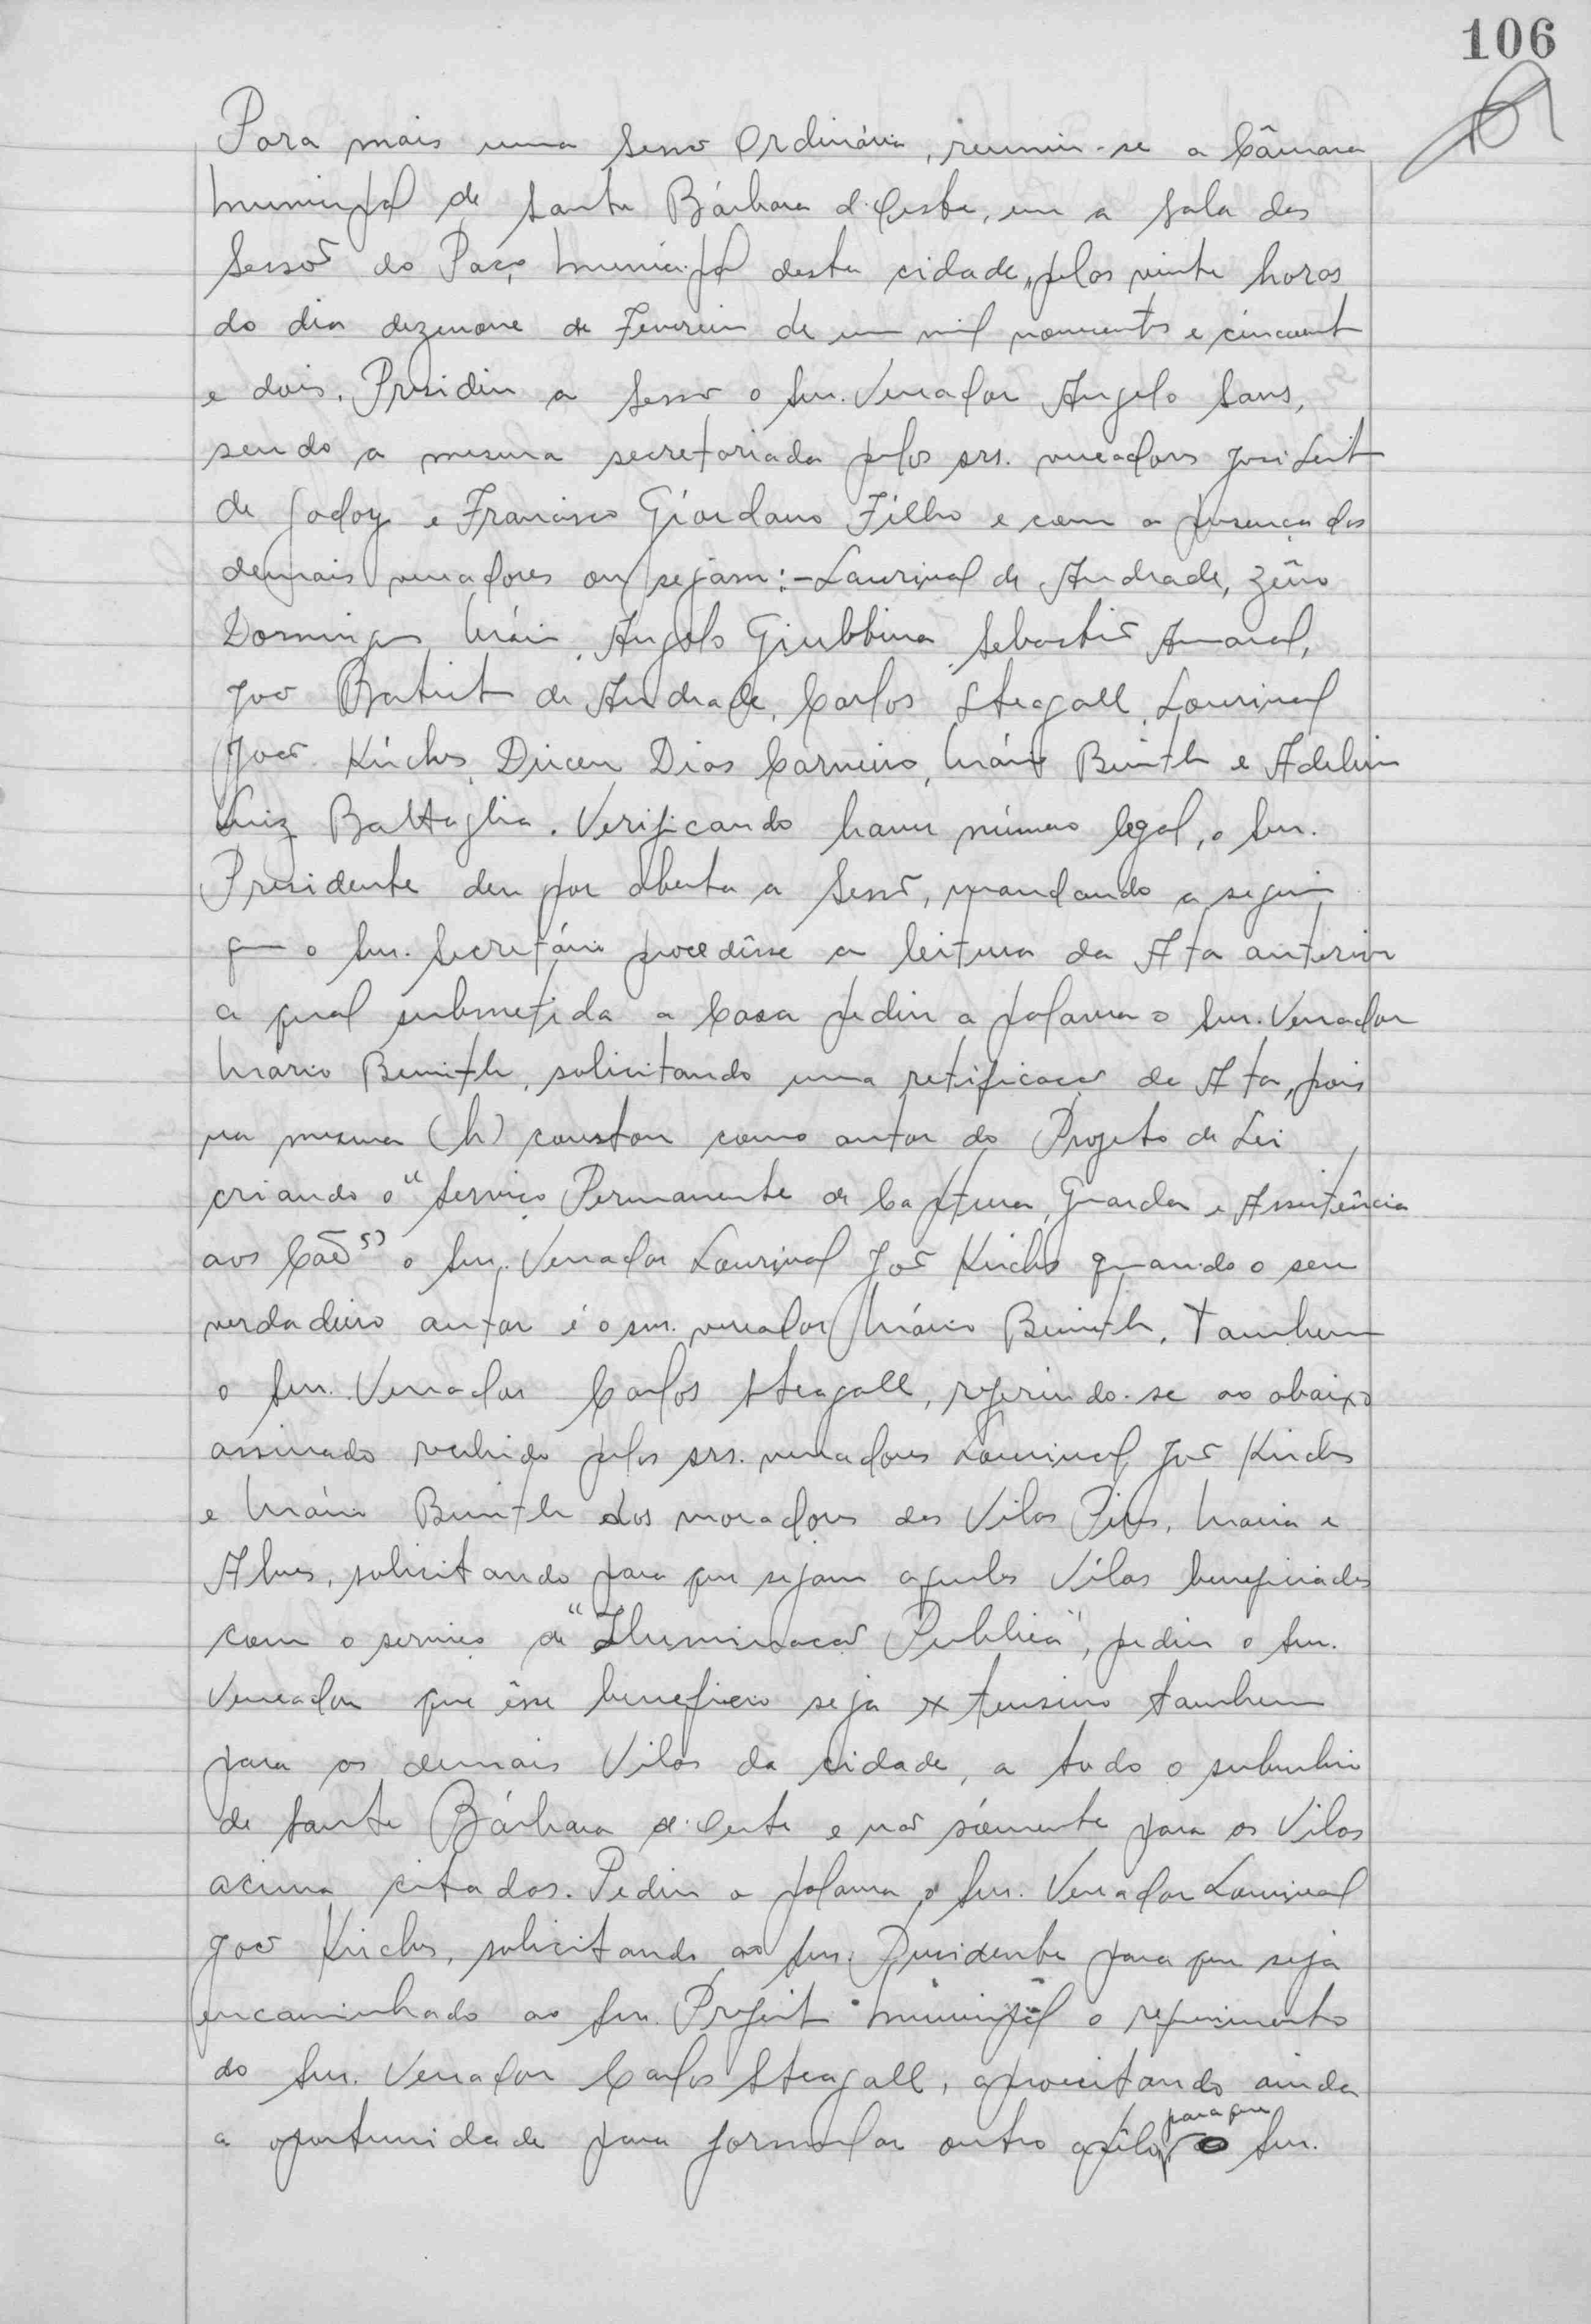 106
Para mais uma Sessão Ordinária, reuniu-se a Câmara
Municipal de Santa Bárbara d'Oeste, em a sala das
Sessões do Paço Municipal desta cidade, pelas vinte horas
do dia dezenove de Fevereiro de um mil novecentos e cincoenta
e dois. Presidiu a Sessão o Snr. Vereador Angelo Sans,
sendo a mesma secretariada pelos srs. vereadores José Leite
de Godoy e Francisco Giordano Filho e com a presença dos
demais vereadores ou sejam:- Laurival de Andrade, Zêno
Domingos Maia, Angelo Giubbina, Sebastião Amaral,
João Batista de Andrade, Carlos Steagall, Lourival
João Kirche, Dirceu Dias Carneiro, Mário Beinth e Adelino
Luiz Battaglia. Verificando haver número legal, o Snr.
Presidente deu por aberta a Sessão, mandando a seguir
que o Snr. Secretário procedêsse a leitura da Ata anterior
a qual submetida a Casa pediu a palavra o Snr. Vereador
Mario Beinth, solicitando uma retificação da Ata, pois
na mesma (h) constou como autor do Projeto de Lei
criando o "Serviço Permanente de Captura, Guarda e Assistência
aos Cães" o Snr. Vereador Lourival João Kirche quando o seu
verdadeiro autor é o snr. vereador Mário Beinth. Tambem
o Snr. Vereador Carlos Steagall, referindo-se ao abaixo
assinado recebido pelos srs. vereadores Lourival João Kirche
e Mário Beinth dos moradores das Vilas Pires, Maria e
Alves, solicitando para que sejam aquelas Vilas beneficiadas
com o serviço de "Iluminação Publica", pediu o Snr.
Vereador que êsse beneficio seja extensivo tambem
para as demais Vilas da cidade, a todo o suburbio
de Santa Bárbara d'Oeste e não sómente para as Vilas
acima citadas. Pediu a palavra o Snr. Vereador Lourival
João Kirche, solicitando ao Snr. Presidente para que seja
encaminhado ao Snr. Prefeito Municipal o requerimento
do Snr. Vereador Carlos Steagall, aproveitando ainda
a oportunidade para formular outro apêlo, para que o Snr.